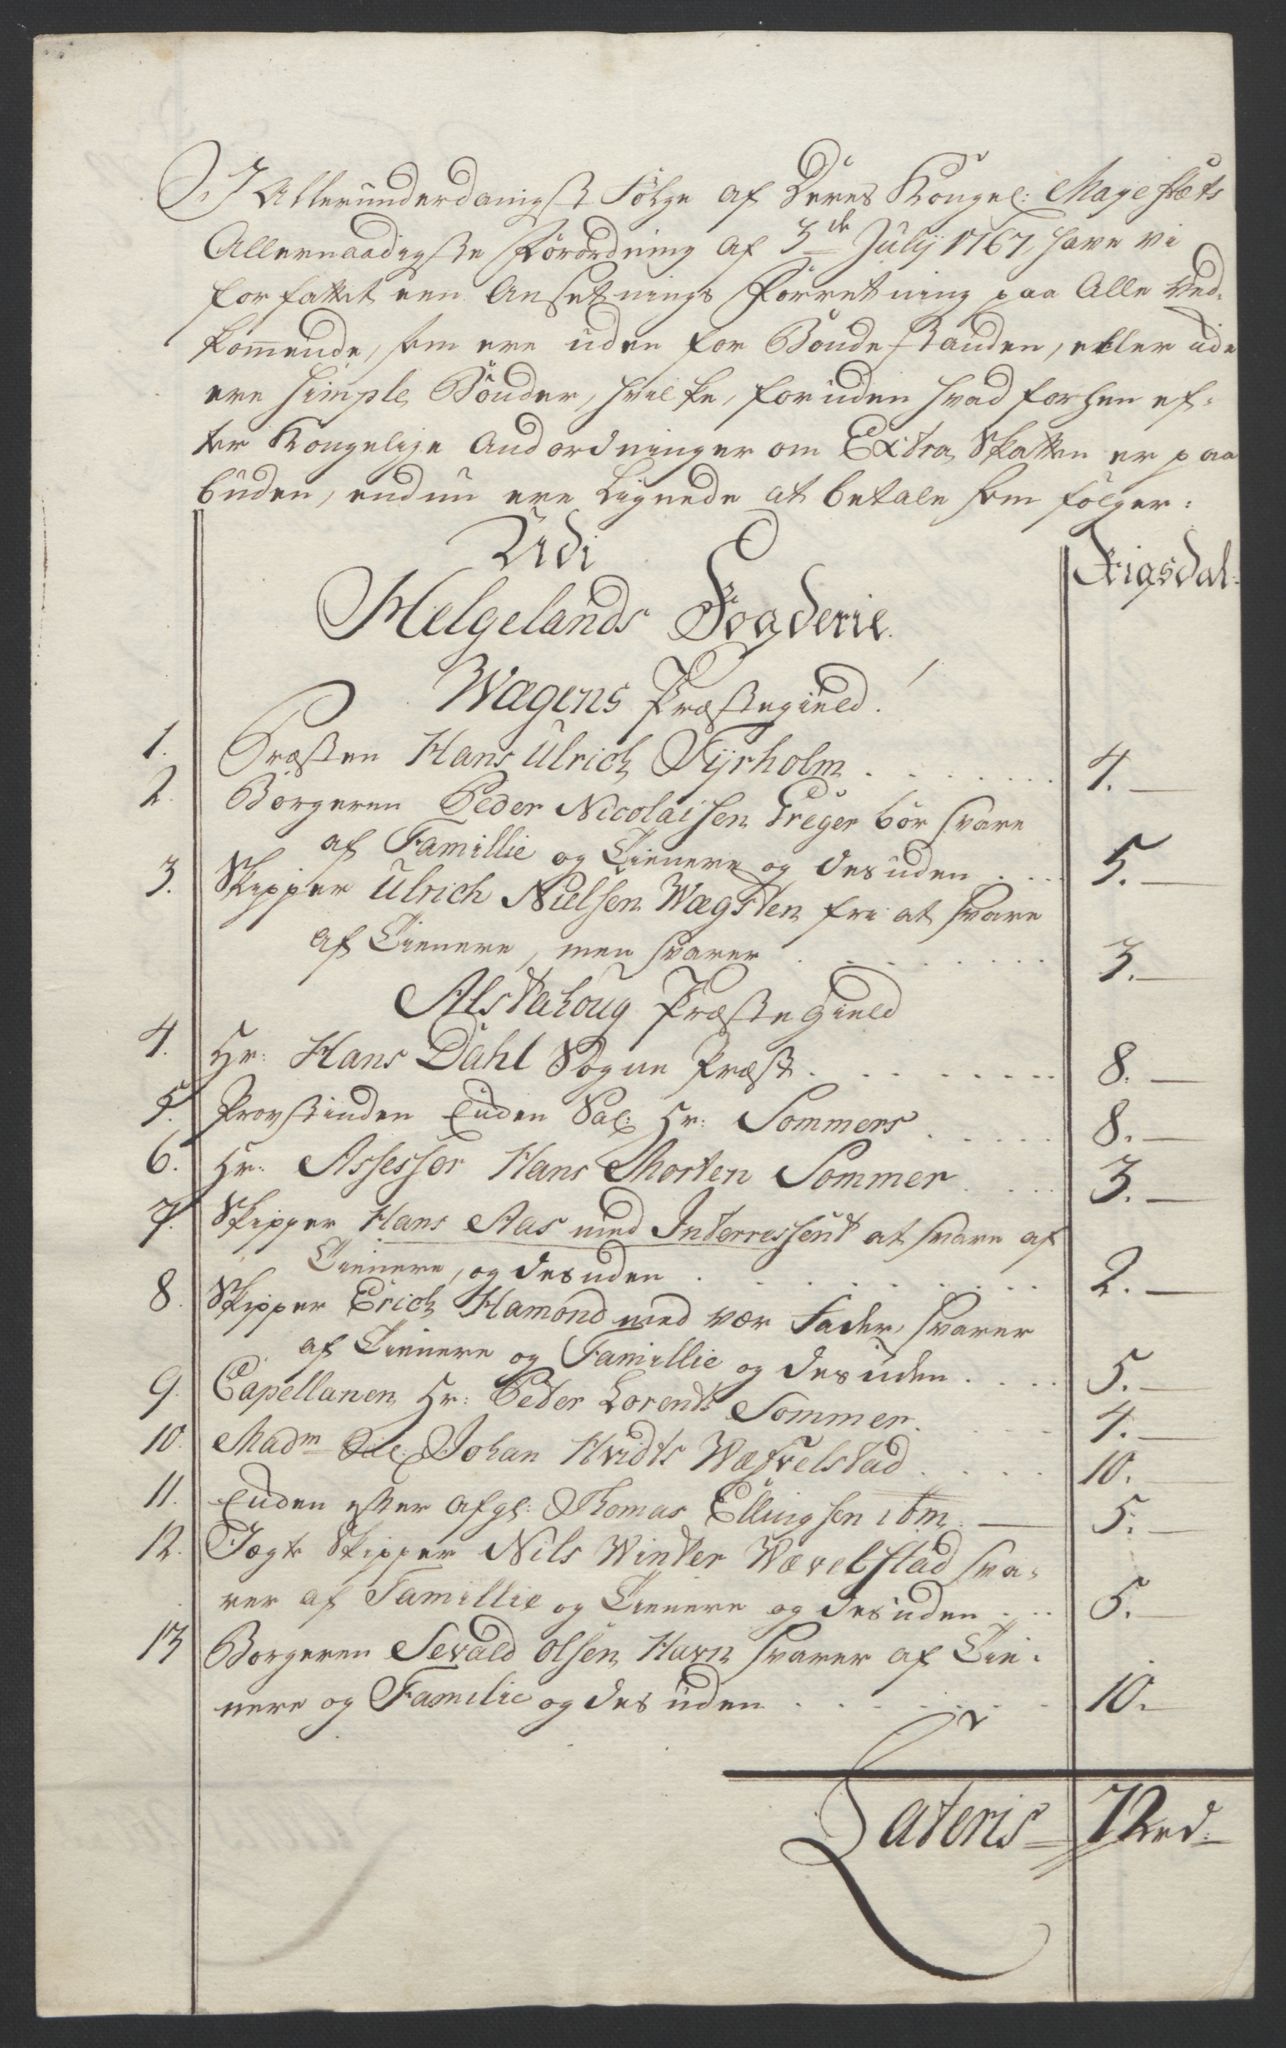 I Allerunderdanigst Følge af Deres Kongel: Mayestæts
Allernaadigste Forordning af 3de Julij 1767, have vi
forfattet een Ansetnings Forretning paa Alle Ved-
kommende, som ere uden for Bondestanden, eller icke
ere simple Bønder, hvilke, foruden hvad forhen ef-
ter Kongelige Andordninger om Extra Skatten er paa
buden, endnu ere Lignede at betale som følger:
Udi
Rigsdal:
Helgelands Fogderie.
Wægens Præstegield.
1. Præsten Hans Ulrich Tyrholm . . . 4.
2. Borgeren Peder Nicolaisen Greger bør svare
af Famillie og Tienere og desuden . . . 5.
3. Skipper Ulrich Nielsen Wægsten fri at svare
af Tienere, men svarer . . . 3.
Alstahoug Præstegield
4. Hr: Hans Dahl Sogne Præst . . . 8.
5. Provstinden Enken Sal: Hr: Sommers . . . 8.
6. Hr: Assessor Hans Morten Sommer . . . 3.
7. Skipper Hans Aas med Interressent at svare af
Tienere, og desuden . . . 2.
8. Skipper Erich Hamond med vær Fader, svarer
af Tienere og Famillie og desuden . . . 5.
9. Capellanen Hr: Peter Lorents Sommer . . . 4.
10. Madm Sal: Johan Hvidts Wæfvelstad . . . 10.
11. Enken efter afgl: Thomas Ellingsen ibm. 5.
12. Jægt Skipper Nils Winter Wævelstad sva-
rer af Famillie og Tienere og desuden . . . 5.
13 Borgeren Sevald Olsen Havn svarer af Tie-
nere og Familie og desuden . . . 10.
Lateris 72 rd: